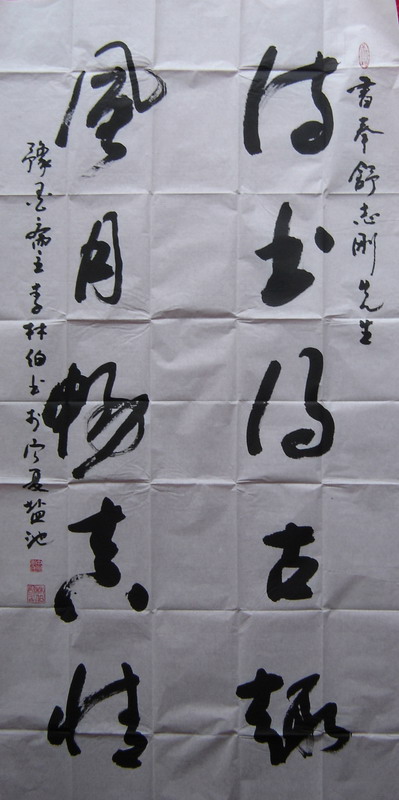 书奉舒志刚先生
诗书得古趣
风月畅真情
豫墨斋主李林伯书于宁夏盐池